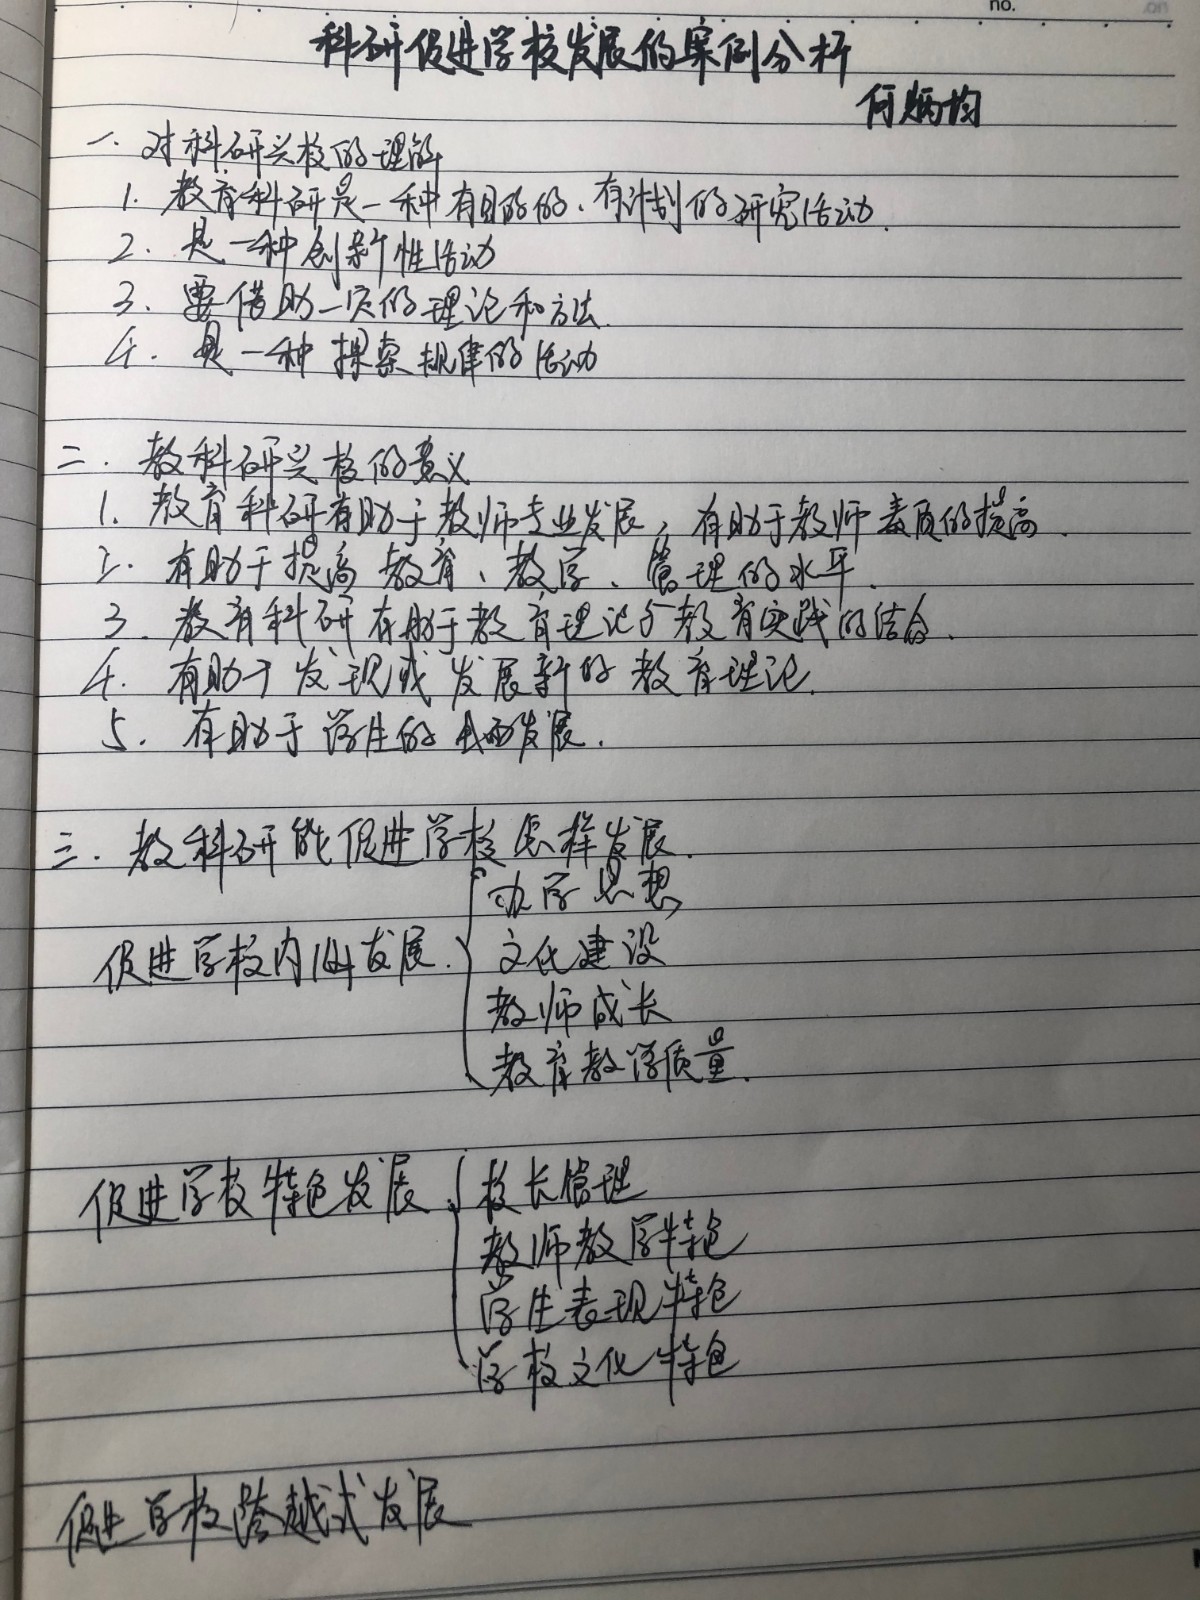 no.
科研促进学校发展的案例分析
何炳均
一、对科研兴校的理解
1. 教育科研是一种有目的的、有计划的研究活动.
2. 是一种创新性活动
3. 要借助一定的理论和方法.
4. 是一种探索规律的活动
二. 教科研兴校的意义
1. 教育科研有助于教师专业发展, 有助于教师素质的提高.
2. 有助于提高教育、教学、管理的水平.
3. 教育科研有助于教育理论与教育实践的结合.
4. 有助于发现或发展新的教育理论.
5. 有助于学生的全面发展.
三. 教科研能促进学校怎样发展.
促进学校内涵发展.
办学思想
文化建设
教师成长
教育教学质量.
促进学校特色发展.
校长管理
教师教学特色
学生表现特色
学校文化特色
促进学校跨越式发展